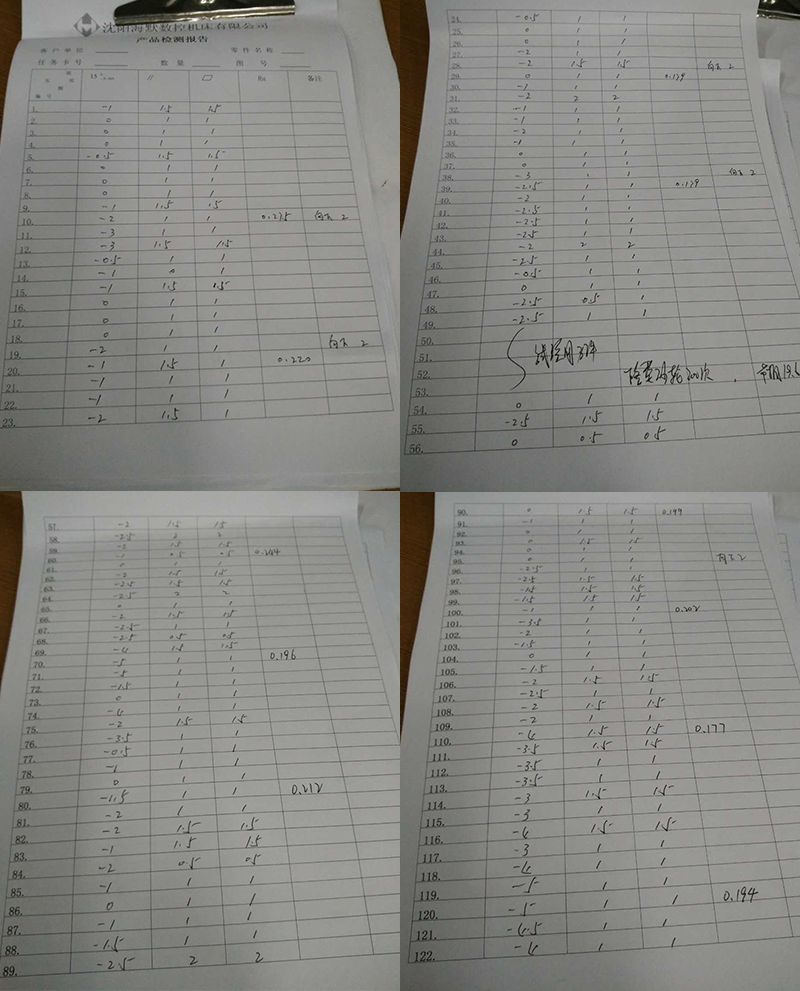 沈阳海默数控机床有限公司
产品检测报告
客户单位 零件名称
任务卡号 数量 图号
编号 15 // ▱ Ra 备注
1. -1 1.5 1.5
2. 0 1 1
3. 0 1 1
4. 0 1 1
5. -0.5 1.5 1.5
6. 0 1 1
7. 0 1 1
8. 0 1 1
9. -1 1.5 1.5
10. -2 1 1 0.235 向下 2
11. -3 1 1
12. -3 1.5 1.5
13. -0.5 1 1
14. -1 0 1
15. -1 1.5 1.5
16. 0 1 1
17. 0 1 1
18. 0 1 1
19. -2 1 1 向下 2
20. -1 1.5 1 0.220
21. -1 1 1
22. -1 1 1
23. -2 1.5 1
24. -0.5 1 1
25. 0 1 1
26. 0 1 1
27. -2 1 1
28. -2 1.5 1.5 向下 2
29. 0 1 1 0.139
30. -1 1 1
31. -2 2 2
32. -1 1 1
33. -1 1 1
34. -2 1 1
35. -1 1 1
36. 0 1 1
37. 0 1 1
38. -3 1 1 向下 2
39. -2.5 1 1 0.139
40. -2 1 1
41. -2.5 1 1
42. -2.5 1 1
43. -2.5 1 1
44. -2 2 2
45. -2.5 1 1
46. -0.5 1 1
47. 0 1 1
48. -2.5 0.5 1
49. -2.5 1 1
50.
51.
52.
53.
54. 0 1 1
55. -2.5 1.5 1.5
56. 0 0.5 0.5
57. -2 1.5 1.5
58. -2.5 2 2
59. -2 1.5 1.5
60. -1 0.5 0.5 0.244
61. 0 1 1
62. -2 1.5 1.5
63. -2.5 1.5 1.5
64. -2.5 2 2
65. 0 1 1
66. -2 1.5 1.5
67. -2.5 1 1
68. -2.5 0.5 0.5
69. -4 1.5 1.5
70. -5 1 1 0.196
71. -5 1 1
72. -1.5 1 1
73. 0 1 1
74. -4 1 1
75. -2 1.5 1.5
76. -3.5 1 1
77. -0.5 1 1
78. -1 1 1
79. 0 1 1
80. -1.5 1 1 0.212
81. -2 1 1
82. -2 1.5 1.5
83. -1 1.5 1.5
84. -2 0.5 0.5
85. -1 1 1
86. 0 1 1
87. -1 1 1
88. -1.5 1 1
89. -2.5 2 2
90. 0 1.5 1.5 0.199
91. -1 1 1
92. 0 1 1
93. 0 1.5 1.5
94. 0 1 1
95. 0 1 1 向下 2
96. -2.5 1 1
97. -2.5 1.5 1.5
98. -1.5 1.5 1.5
99. -1.5 1.5 1.5
100. -1 1 1 0.202
101. -3.5 1 1
102. -2 1 1
103. -1.5 1 1
104. 0 1 1
105. -1.5 1 1
106. -2 1.5 1.5
107. -2.5 1 1
108. -2 1.5 1.5
109. -2 1 1
110. -4 1.5 1.5 0.177
111. -3.5 1.5 1.5
112. -3.5 1 1
113. -3.5 1 1
114. -3 1.5 1.5
115. -3 1 1
116. -4 1.5 1.5
117. -3 1 1
118. -4 1 1
119. -5 1 1
120. -5 1 1 0.194
121. -4.5 1 1
122. -4 1 1